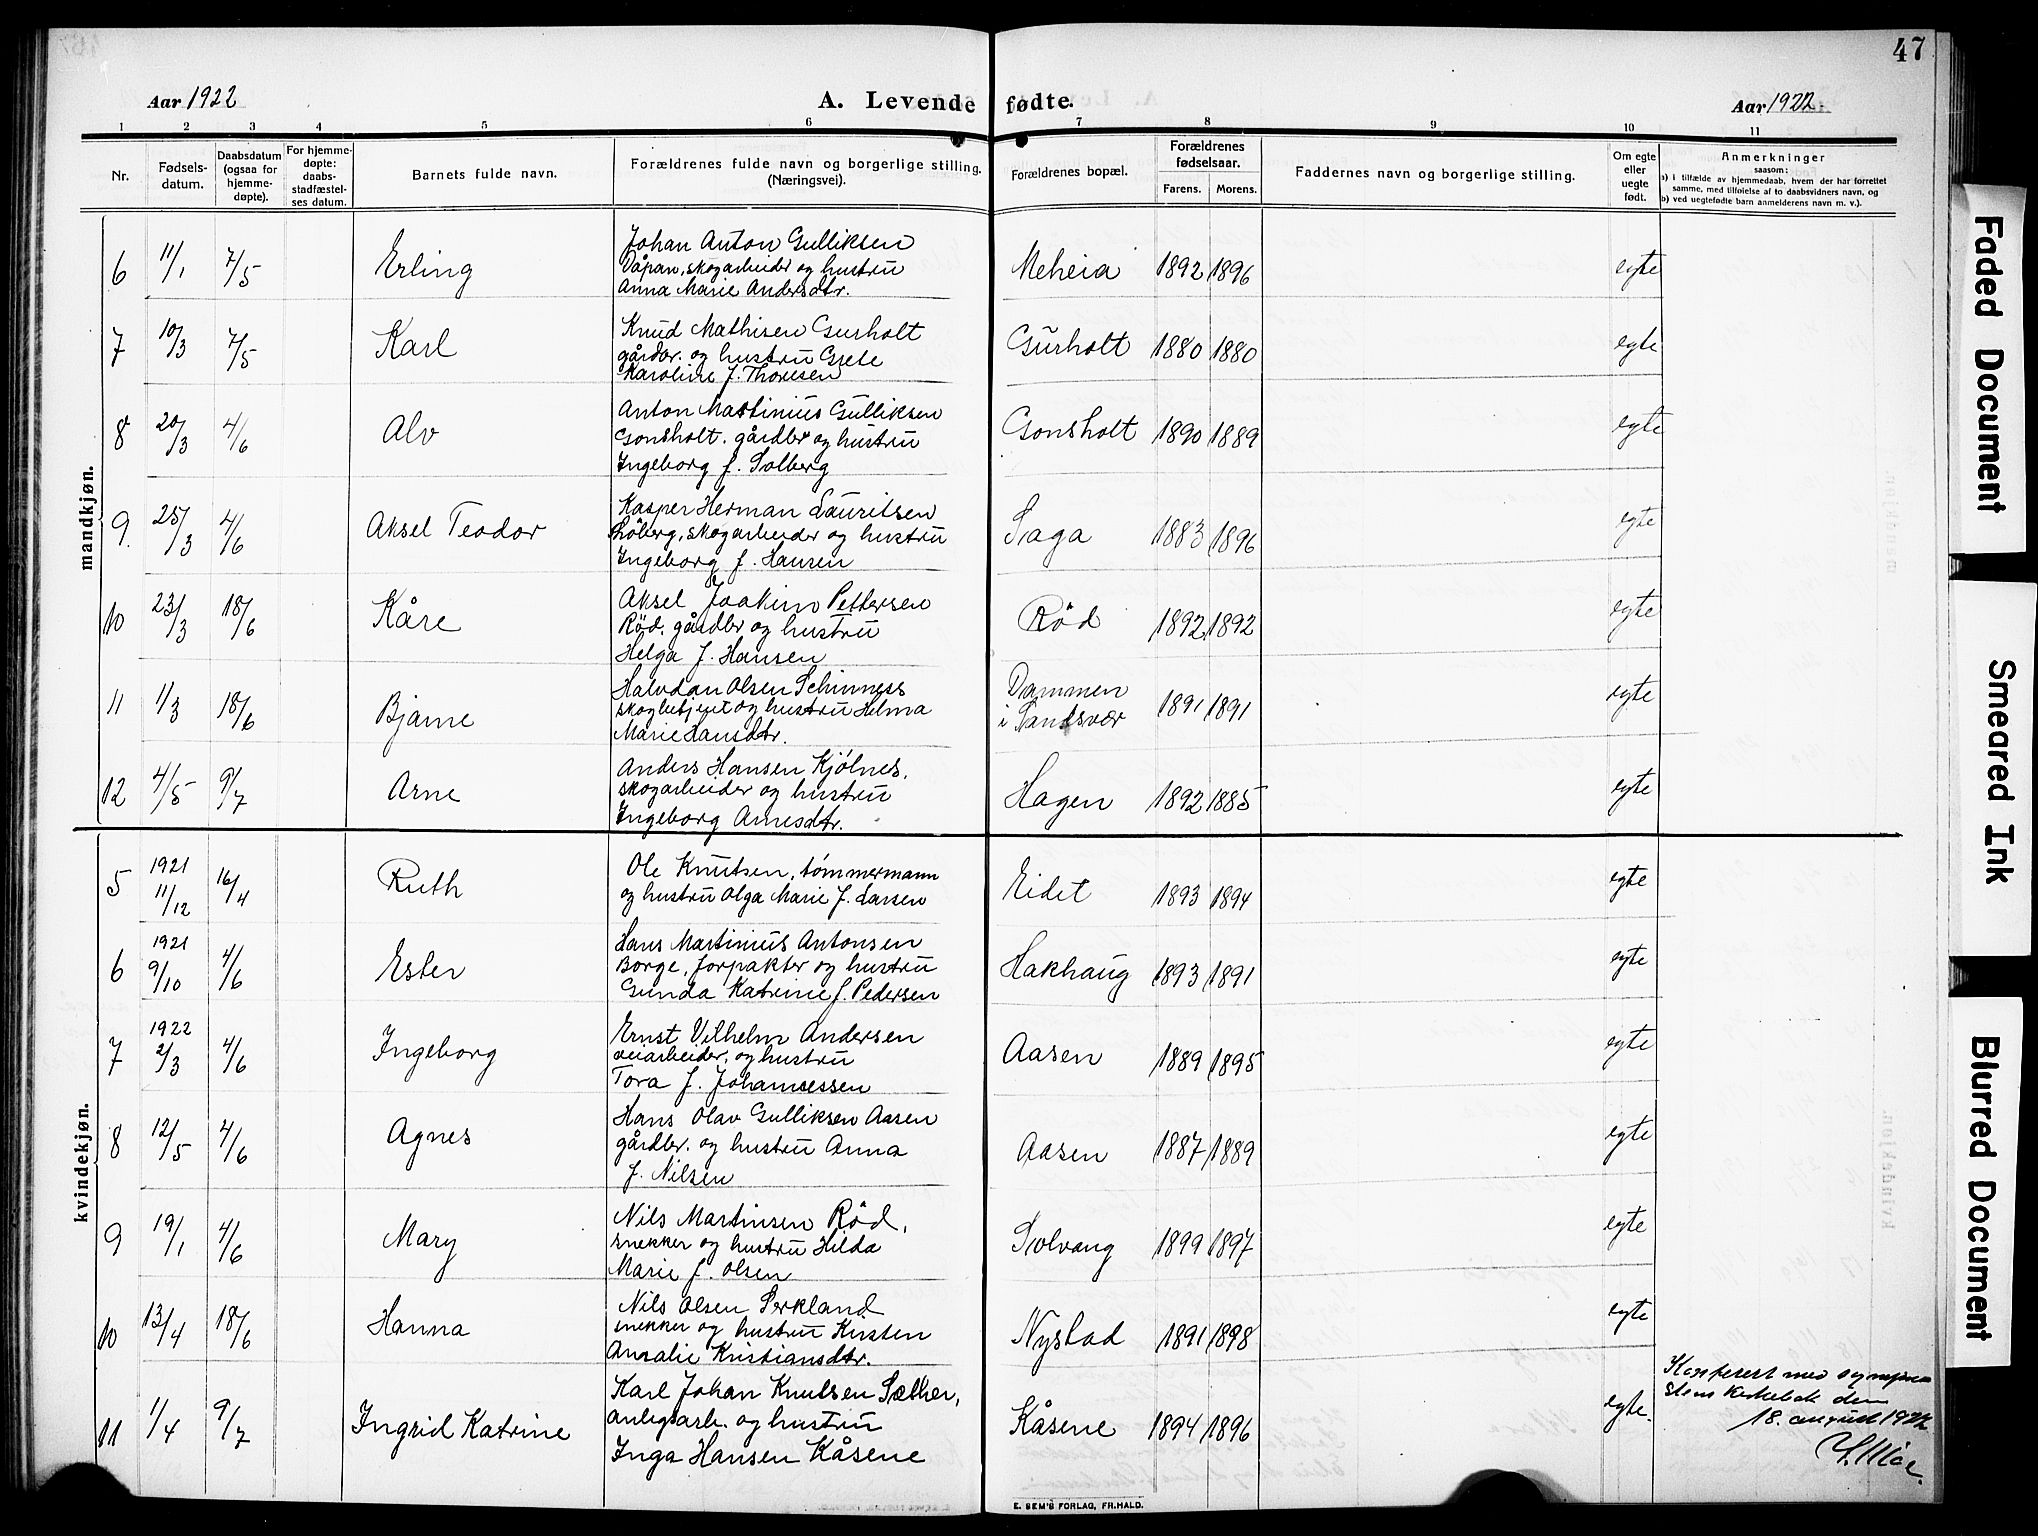 47
Aar 1922
A. Levende fødte.
Aar 1922
1 2 3 4 5 6 7 8 9 10 11
Nr.
Fødsels-
datum.
Daabsdatum
(ogsaa for
hjemme-
døpte).
For hjemme-
døpte:
daabs-
stadfæstel-
ses datum.
Barnets fulde navn.
Forældrenes fulde navn og borgerlige stilling.
(Næringsvei).
Forældrenes bopæl.
Forældrenes
fødselsaar.
Farens. Morens.
Faddernes navn og borgerlige stilling.
Om egte
eller
uegte
født.
Anmerkninger
saasom:
a) i tilfælde av hjemmedaab, hvem der har forrettet
samme, med tilføielse af to daabsvidners navn, og
b) ved uegtefødte barn anmelderens navn m. v.).
mandkjøn.
6 11/1 7/5 Erling
Johan Anton Gulliksen
Våpan, skogarbeider og hustru
Anna Marie Andersdtr.
Meheia 1892 1896 egte
7 10/3 7/5 Karl
Knud Mathisen Gurholt
gårdbr. og hustru Grete
Karoline f. Thoresen
Gurholt 1880 1880 egte
8 20/3 4/6 Alv
Anton Martinius Gulliksen
Gonsholt. gårdbr og hustru
Ingeborg f. Solberg
Gonsholt 1890 1889 egte
9. 25/3 4/6 Aksel Teodor
Kasper Herman Lauritsen
Løberg, skogarbeider og hustru
Ingeborg f. Hansen
Saga 1883 1896 egte
10 23/3 18/6 Kåre
Aksel Joakim Pettersen
Rød, gårdbr og hustru
Helga f. Hansen
Rød 1892 1892 egte
11 1/3 18/6 Bjarne
Halvdan Olsen Schinness
skogbetjent og hustru Helma
Marie Hansdtr.
Dammen
i Sandsvær 1891 1891 egte
12 4/5 9/7 Arne
Anders Hansen Kjølnes,
skogarbeider og hustru
Ingeborg Arnesdtr.
Hagen 1892 1885 egte
kvindekjøn.
5 1921 11/12 16/4 Ruth
Ole Knutsen, tømmermann
og hustru Olga Marie f. Larsen
Eidet 1893 1894 egte
6 1921 9/10 4/6 Ester
Hans Martinius Antonsen
Borge, forpakter og hustru
Gunda Katrine f. Pedersen
Hakhaug 1893 1891 egte
7 1922 2/3 4/6 Ingeborg
Ernst Vilhelm Andersen
veiarbeider, og hustru
Tora f. Johannessen
Aasen 1889 1895 egte
8 12/5 4/6 Agnes
Hans Olav Gulliksen Aasen
gårdbr. og hustru Anna
f. Nilsen
Aasen 1887 1889 egte
9 19/1 4/6 Mary
Nils Martinsen Rød,
snekker og hustru Hilda
Marie f. Olsen
Solvang 1899 1897 egte
10 13/4 18/6 Hanna
Nils Olsen Serkland
snekker og hustru Kirsten
Amalie Kristiansdtr.
Nystad 1891 1898 egte
11 1/4 9/7 Ingrid Katrine
Karl Johan Knutsen Sæther,
anlegsarb. og hustru
Inga Hansen Kåsene
Kåsene 1894 1896 egte.
Konferert med sogneprestens
kirkebok den
18. august 1922
S. Moe.
E. SEM'S FORLAG, FR.HALD.
Faded Document
Smeared Ink
Blurred Document